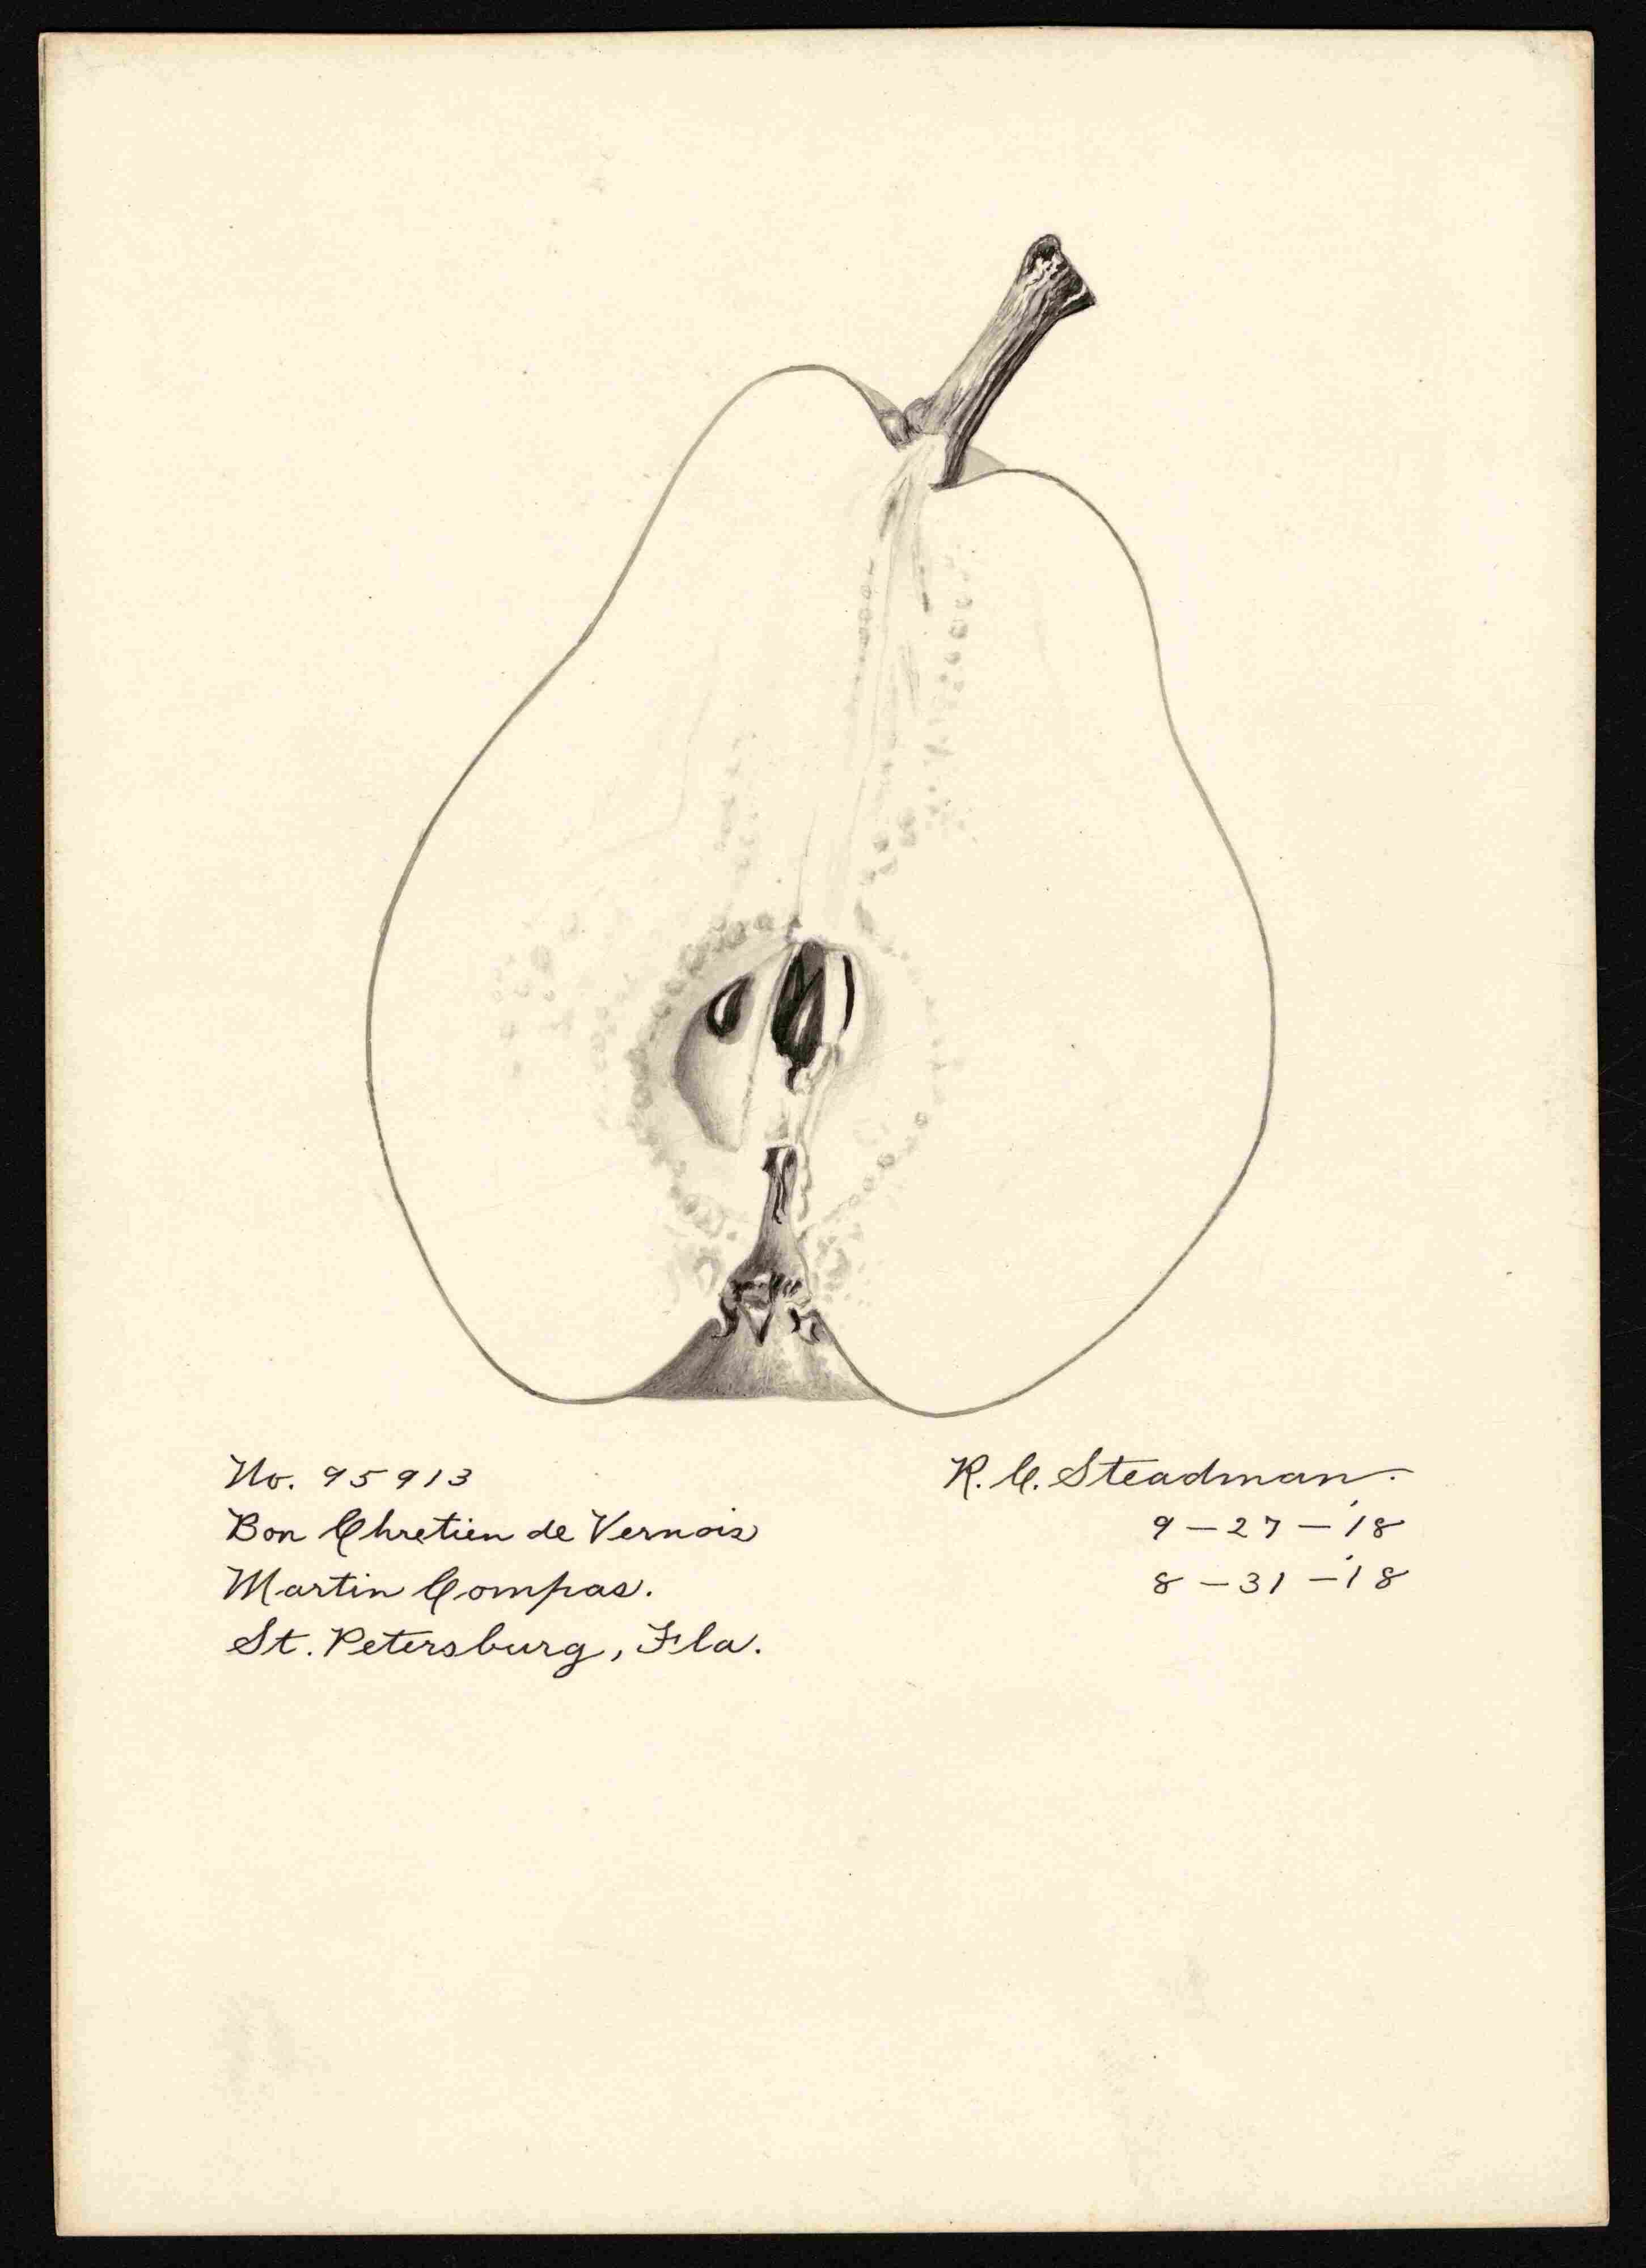 No. 95913
Bon Chretien de Vernois
Martin Compas.
St. Petersburg, Fla.
R. C. Steadman.
9-27-'18
8-31-'18